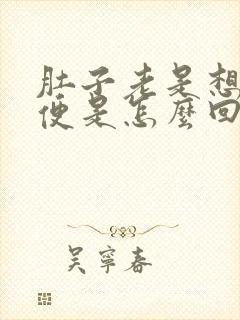 肚子老是想
便是怎麼回
吴寧春